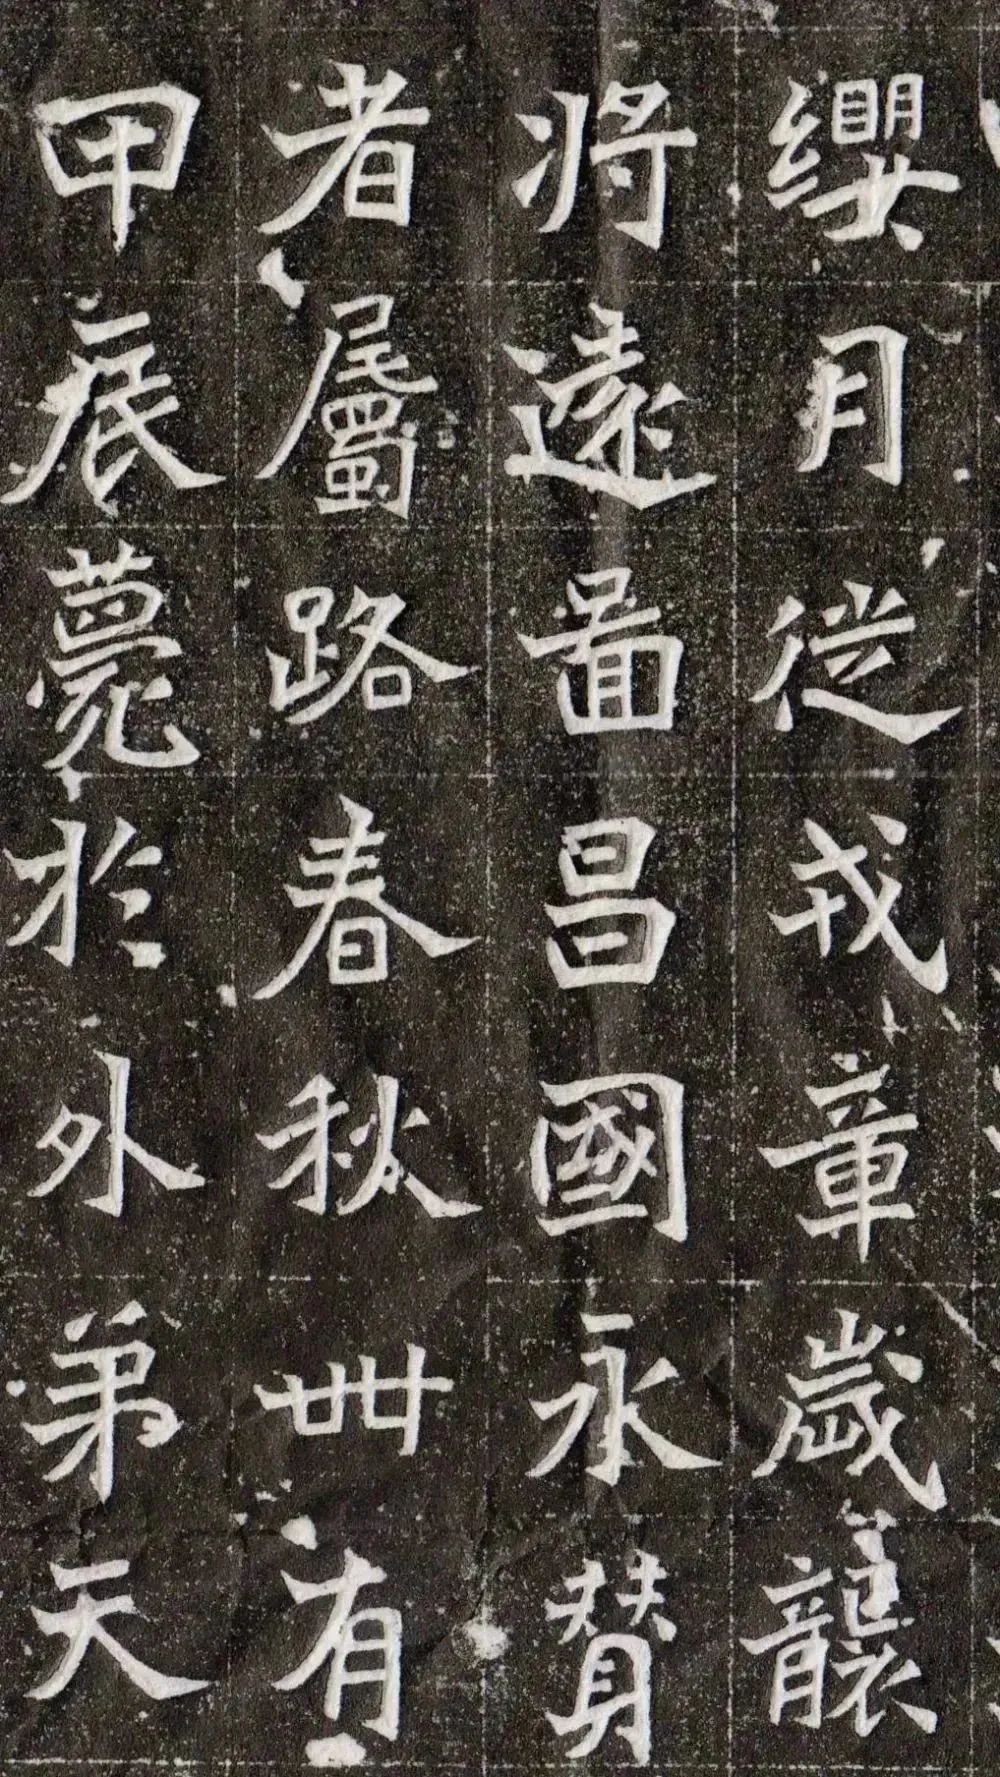 纓月從戎章歲襲
將遠圖昌國永賛
者屬路春秋卌有
甲辰薨於外弟天